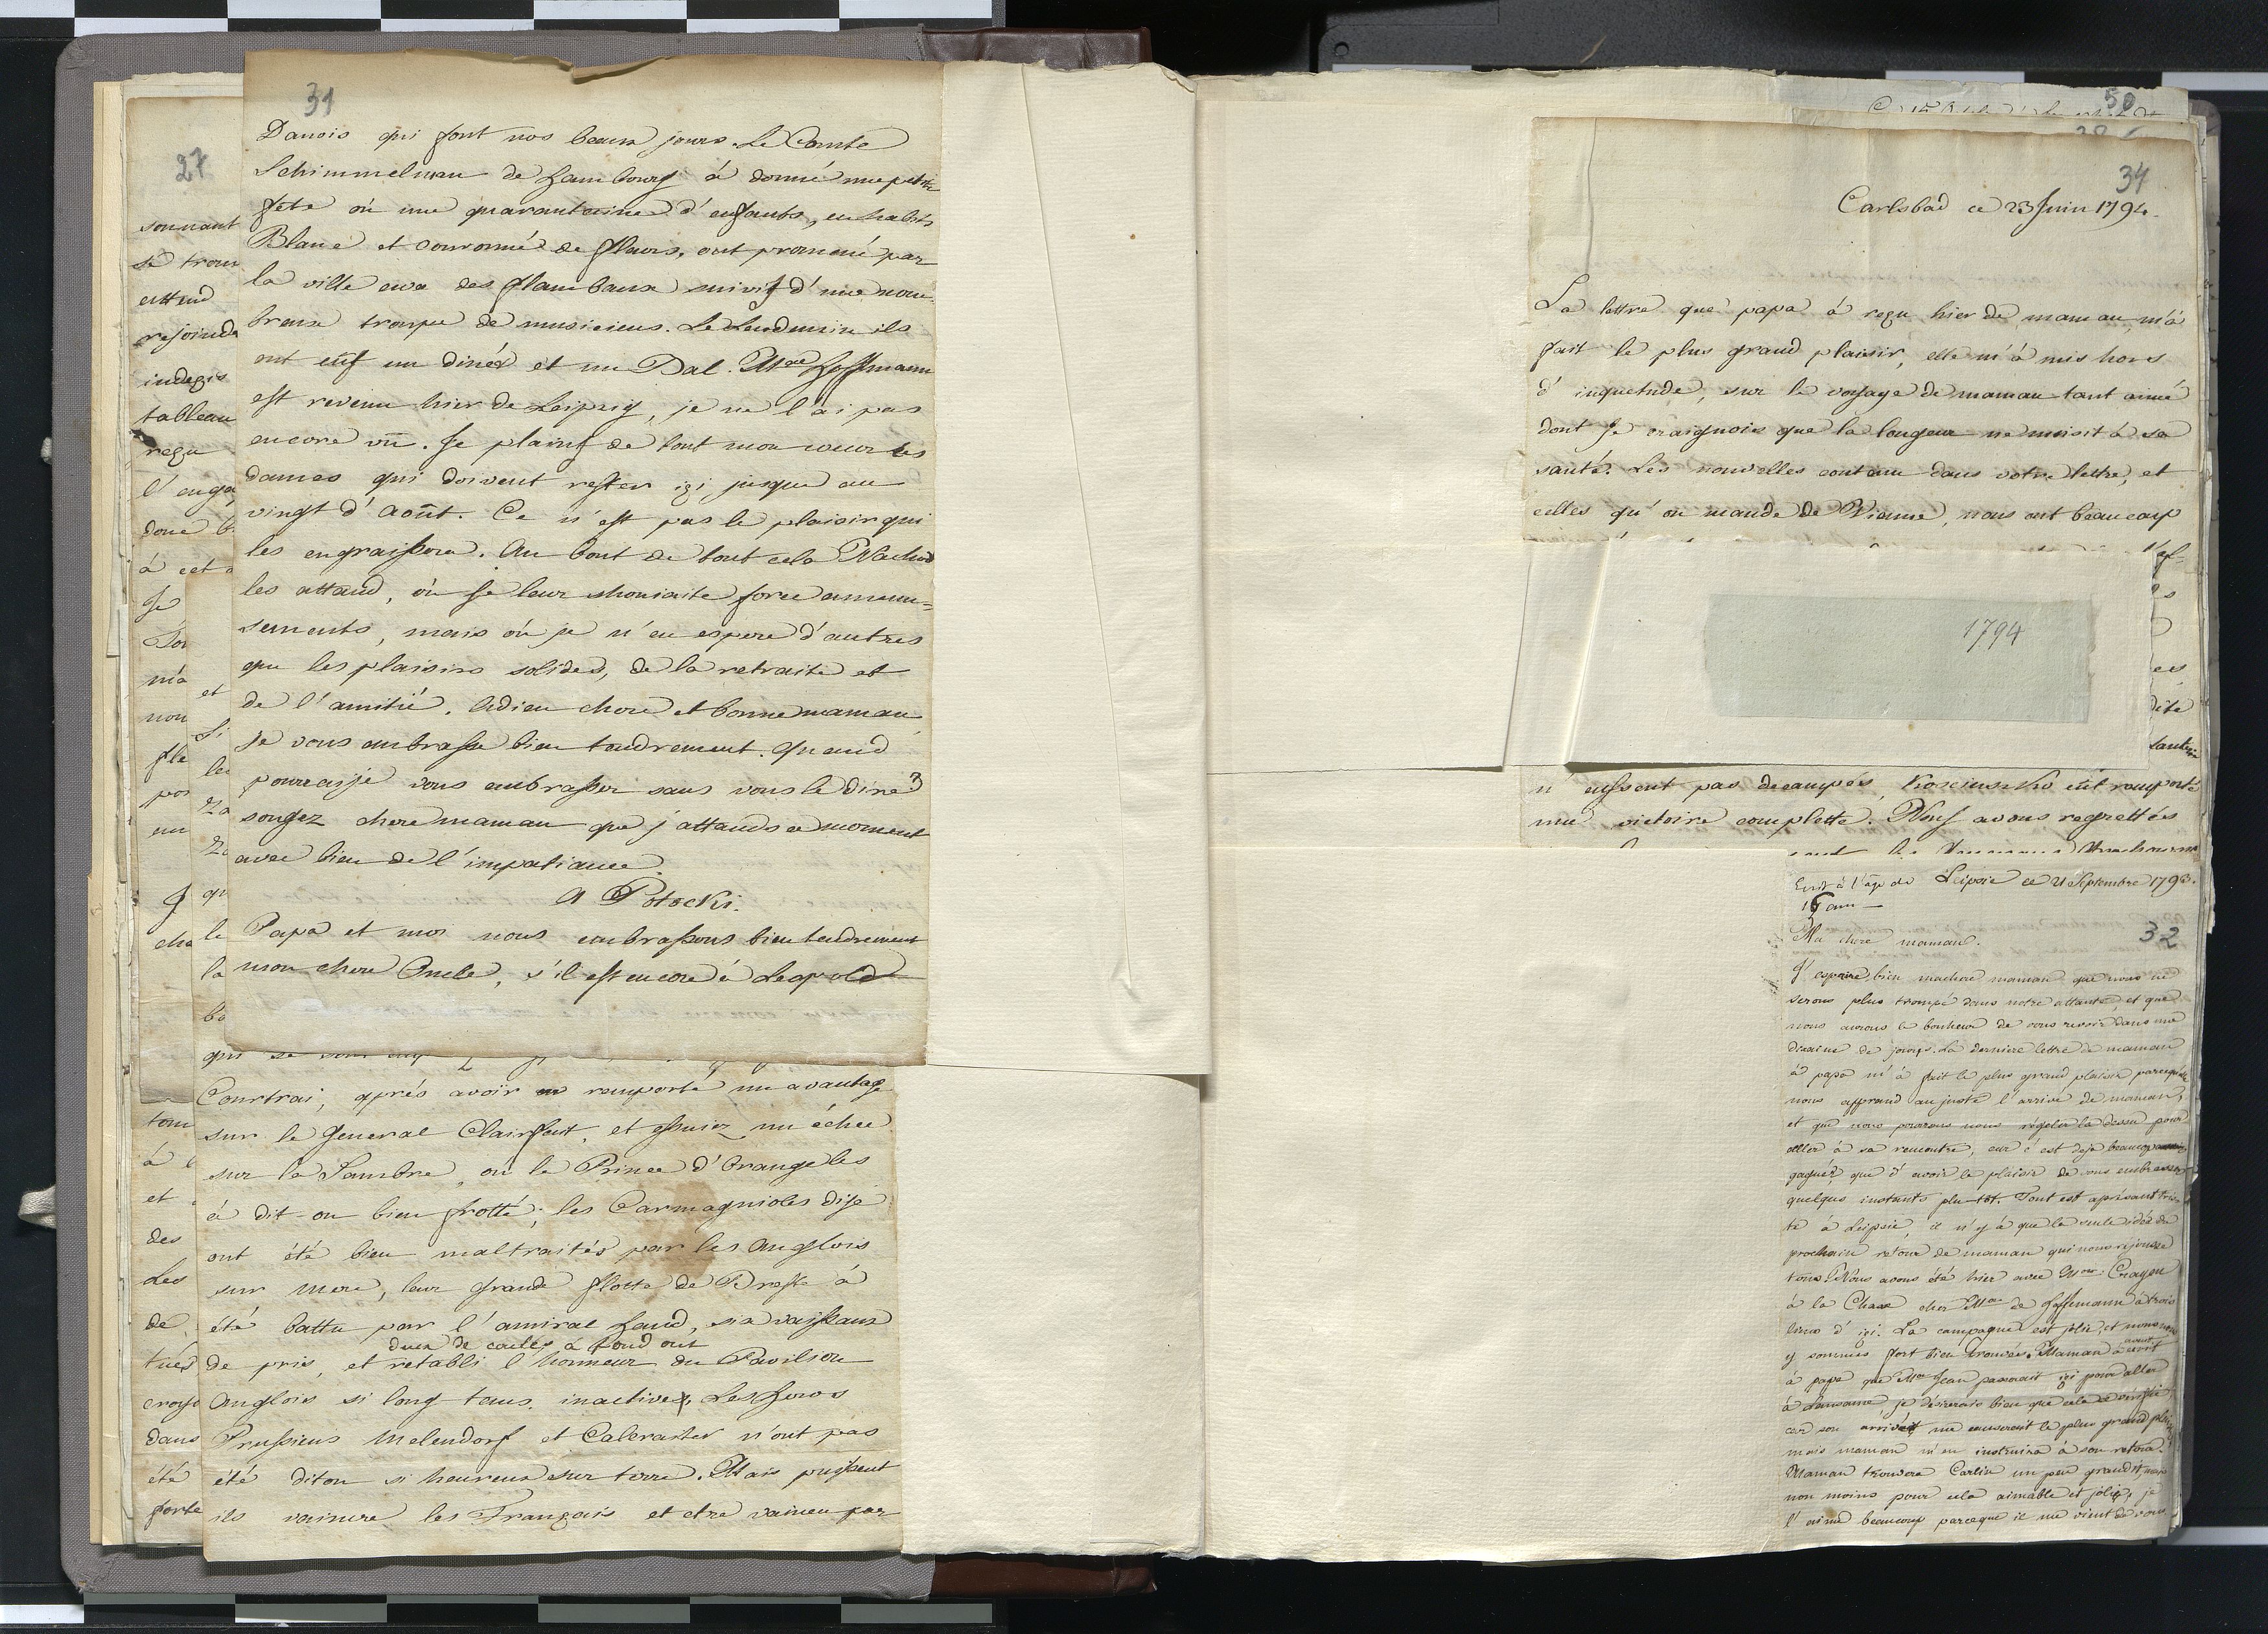 31
Danois qui font nos beaux jours. Le Comte
Schimmelman de Hambourg à donné une petite
fête où une quarantaine d'enfants, en habits
Blanc et couronné de fleurs, ont promené par
la ville avec des flambaux suivis d'une nom-
breuse troupe de musiciens. Le Lendemin ils
ont eüs un diner et un Bal. Mme Hoffmann
est revenu hier de Leipzig, je ne l'ai pas
encore vû. Je plains de tout mon coeur les
dames qui doivent rester izi jusque au
vingt d'août. Ce n'est pas le plaisir qui
les engraissera. Au bout de tout cela Nachod
les attand, où je leur shouiaite force amuse=
sements, mais où je n'en espere d'autres
que les plaisirs solides, de la retraite et
de l'amitié. Adieu chere et bonne maman
je vous embrasse bien tendrement. Quand
pourraije vous embrasser sans vous le dire?
songez chere maman que j'attands ce moment
avec bien de l'impatiance.
A Potocki.
Papa et moi nous embrassons bien tendrement
mon chere Oncle, s'il est encore à Leopold
27
sonnant
se trouv
attend
rejoinde
indegis
tableau
reçu
l'enga
donc
à cet
Je
m'a
non
et
les
la
Courtrai, après avoir remporté un avantage
sur le General Clairfait, et essuiez un échec
sur la Sambre, où le Prince d'Orange les
à dit-on bien frotté; les Carmagnioles dije
ont été bien maltraités par les Anglois
sur Mere, leur grande flotte de Breste à
été battu par l'amiral Haud, six vaissaux
deux de coulés à fond ont
de pris, et retabli l'honneur du Pavilion
Anglois si long tems, inactives. Les Heros
Prussiens Melendorf et Calcraiter n'ont pas
été diton si heureux sur terre. Mais puissent
ils vaincre les Français et etre vaincu par
à
et
des
Les
de
tués
dans
été
forte
50
34
Carlsbad ce 23 Juin 1794.
La lettre que papa à reçu hier de maman, m'à
fait le plus grand plaisir, elle m'à mis hors
d'inquetude, sur le voyage de maman tant aimé
dont je craignois que la longeur ne nuisit à sa
santé. Les nouvelles contenu dans votre lettre, et
celles qu'on mande de Vienne, nous ont beaucoup
1794
n'eussent pas decampés, Kosciuszko eüt remporté
une victoire complette. Nous avons regrettés
Ecrit à l'âge de Leipsic ce 21 Septembre 1793.
ans
Ma chere maman.
32
J'espaire bien machere maman que nous ne
serons plus trompé dans notre attante, et que
nous aurons le bonheur de vous revoir dans une
dixaine de jours. La derniere lettre de maman
à papa m'à fait le plus grand plaisir parcequ'elle
nous apprand aujuste l'arrivé de maman,
et que nous pourrons nous régeler la dessu pour
aller à sa rencontre, car c'est deja beaucoup
gagnér que d'avoir le plaisir de vous embrasser
quelques instants plu tôt. Tout est aprésant tris-
te à Leipsic, il n'y à que la seule idée du
prochain retour de maman qui nous rejouisse
tous. Nous avons été hier avec Mme Crayen
à la Chasse chez Mme de Hoffemann à trois
lieux d'izi. La campagne est jolie, et nous nous
y sommes fort bien trouvés. Maman avoit écrit
à papa que Mme Jean passerait izi pour aller
à Lausanne je désirerais bien que cela
car son arrivée me causerait le plus grand plaisir
mais maman m'en instruira à son retour.
Maman trouvera Carlin un peu grandit, mais
non moins pour cela aimable et jolie, je
l'aime beaucoup parceque il me vient de vous